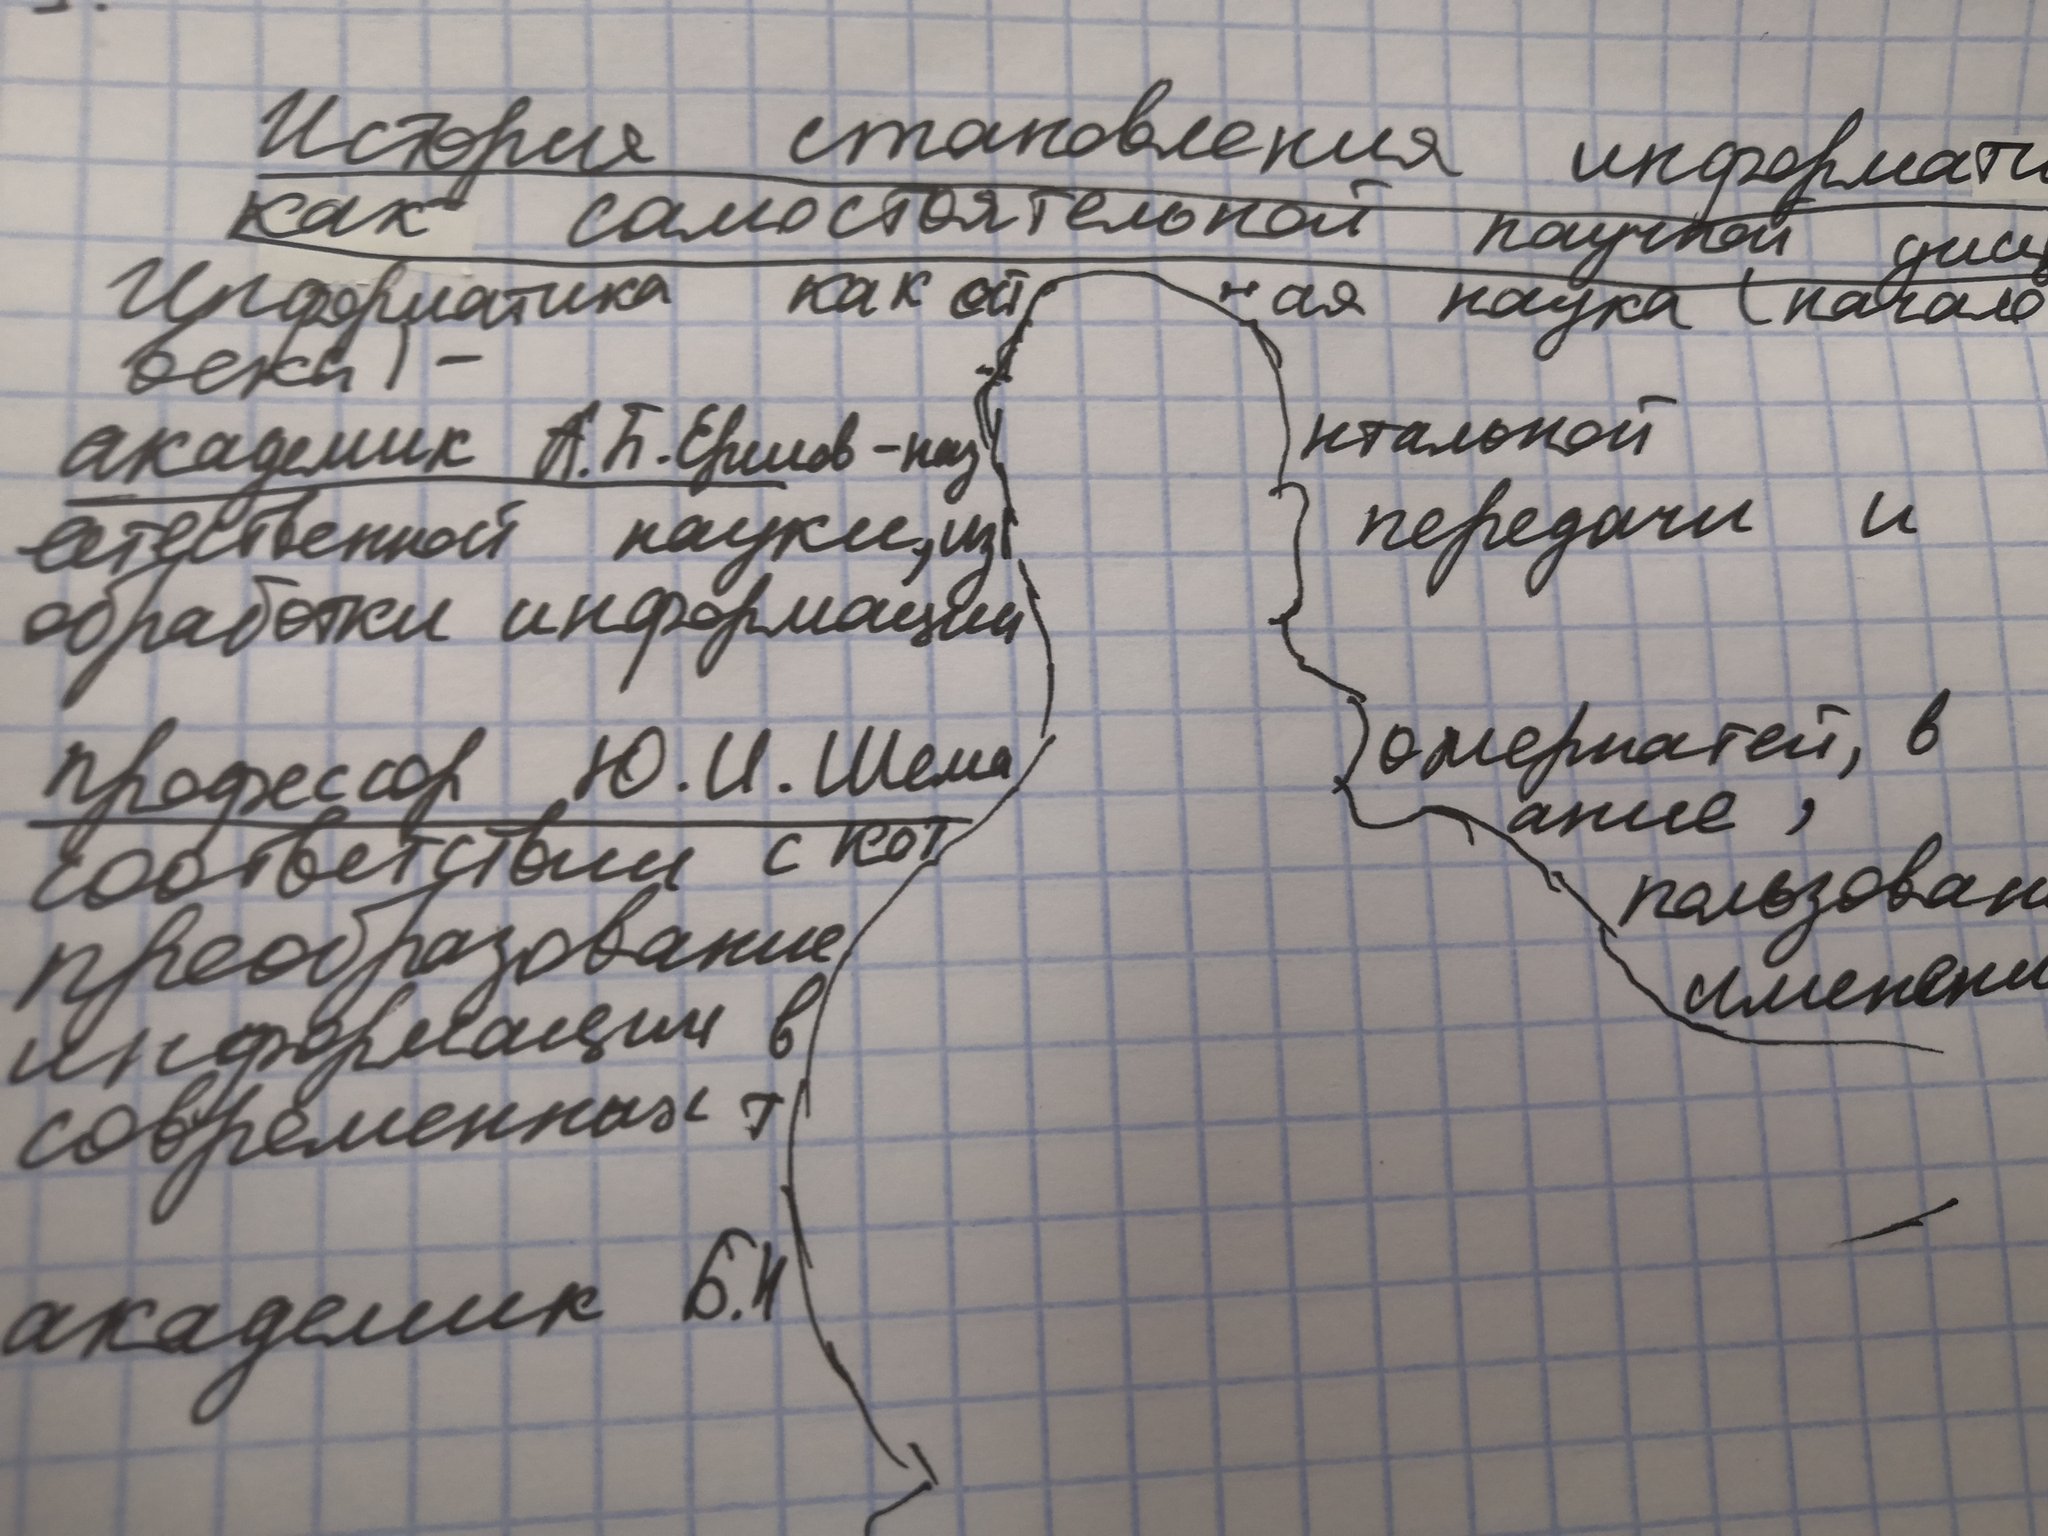 История становления информати
как самостоятельной научной дисц
Информатика как от ная наука (начало
века) -
академик А.П.Ершов - наз нтальной
естественной науки, из передачи и
обработки информации
профессор Ю.И.Шема омерностей, в
соответствии с кот ание,
преобразование пользован
информации в именени
современных т
академик Б.Н